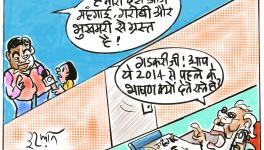 हमारा देश आज
मंहगाई, गरीबी और
भुखमरी से ग्रस्त
है!
गडकरी जी! आप
ये 2014 से पहले के
भाषण क्यों देते रहते हैं!
इरफान